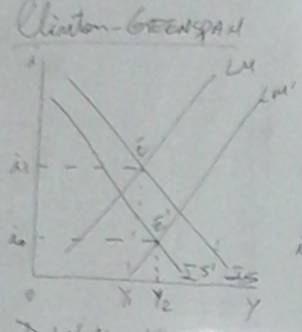 Clinton-GEENSPAN
i
LM
LM'
E
i1
E'
i0
IS'
IS
0
Y
Y2
Y